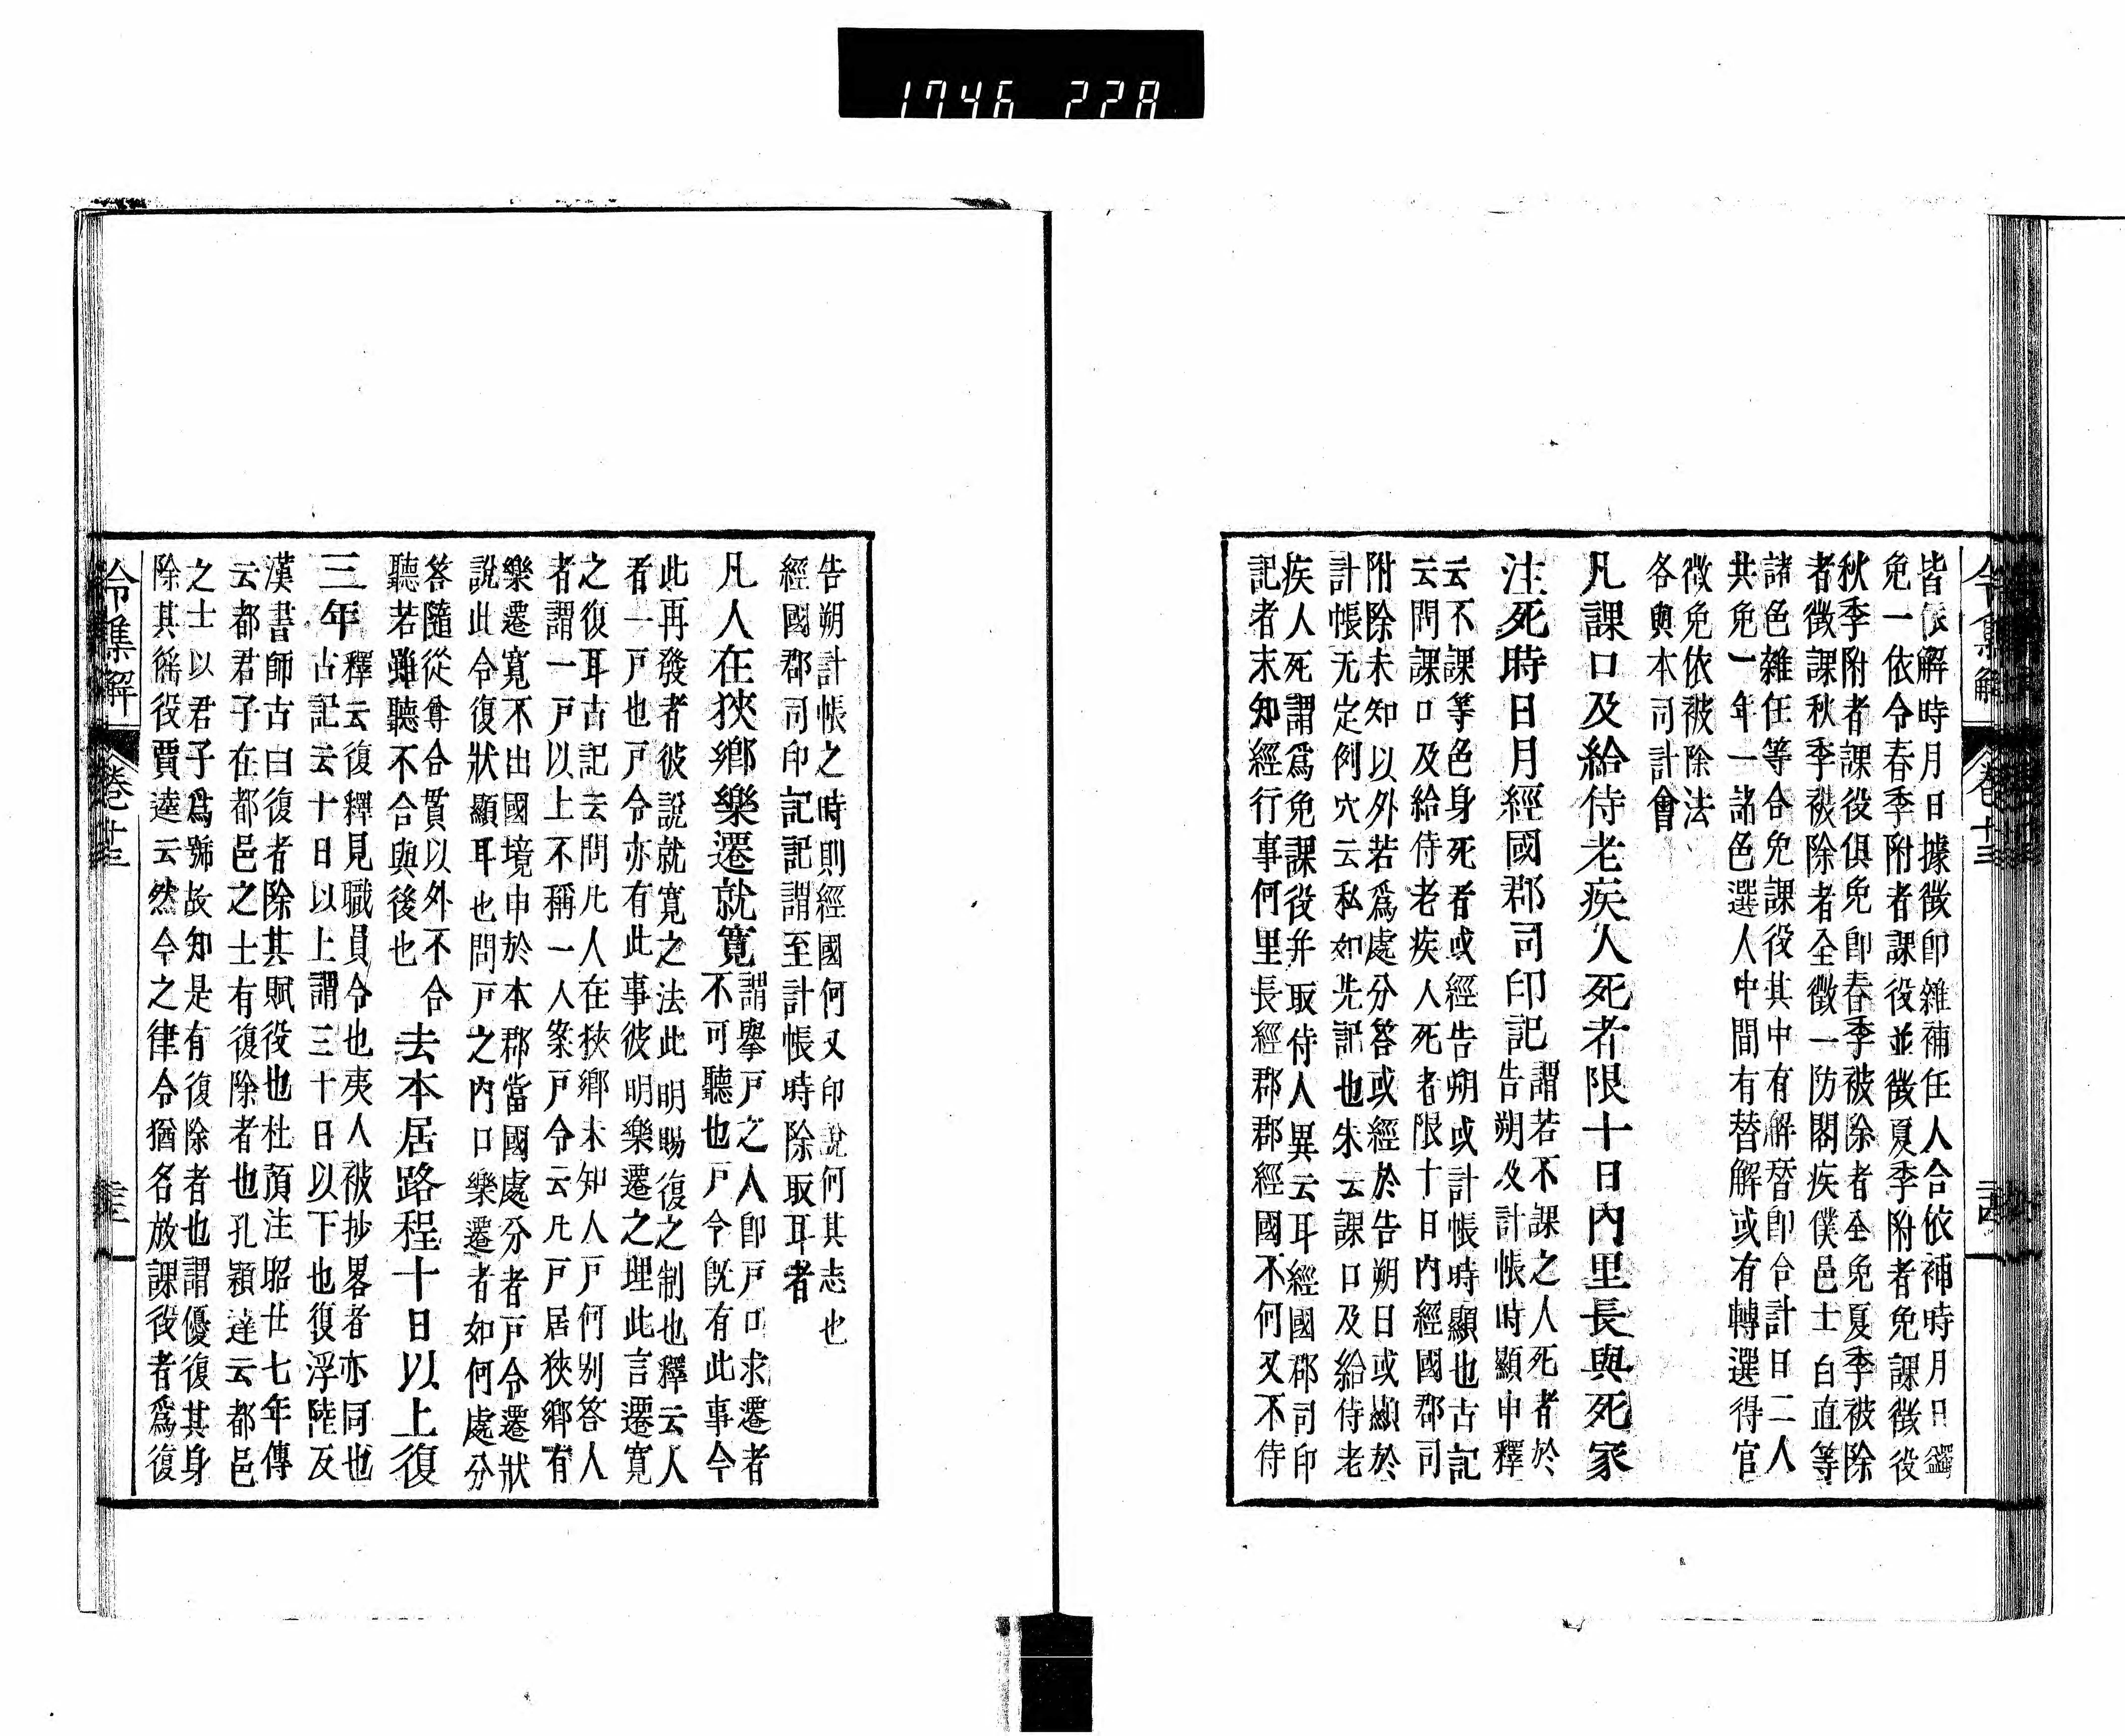 1746 228
令集解 卷十三
皆依解時月日據徵卽雜補任人合依補時月日
免一依令春季附者課役並徵夏季附者免課徵役
秋季附者課役俱免卽春季被除者全免夏季被除
者徵課秋季被除者全徵一防閤疾僕邑士白直等
諸色雜任等合免課役其中有解替卽合計日二人
共免一年一諸色選人中間有替解或有轉選得官
徵免依被除法
各與本司計會
凡課口及給侍老疾人死者限十日內里長與死家
注死時日月經國郡司印記
謂若不課之人死者於
告朔及計帳時顯申釋
云不課等色身死者或經告朔或計帳時顯也古記
云問課口及給侍老疾人死者限十日內經國郡司
附除未知以外若爲處分答或經於告朔日或顯於
計帳无定例穴云私如先記也朱云課口及給侍老
疾人死謂爲免課役并取侍人異云耳經國郡司印
記者未知經行事何里長經郡郡經國不何又不待
告朔計帳之時則經國何又印說何其志也
經國郡司印記記謂至計帳時除取耳者
凡人在狹鄉樂遷就寬
謂擧戶之人卽戶口求遷者
不可聽也戶令旣有此事今
此再發者彼說就寬之法此明賜復之制也釋云人
者一戶也戶令亦有此事彼明樂遷之理此言遷寬
之復耳古記云問凡人在狹鄉未知人戶何别答人
者謂一戶以上不稱一人案戶令云凡戶居狹鄉有
樂遷寬不出國境申於本郡當國處分者戶令遷狀
說此令復狀顯耳也問戶之內口樂遷者如何處分
答隨從尊合貫以外不合
聽若雖聽不合與後也
去本居路程十日以上復
三年
釋云復釋見職員令也夷人被抄畧者亦同也
古記云十日以上謂三十日以下也復浮陸及
漢書師古曰復者除其賦役也杜預注昭廿七年傳
云都君子在都邑之士有復除者也孔穎達云都邑
之士以君子爲號故知是有復除者也謂優復其身
除其徭役賈逵云然今之律令猶名放課役者爲復
令集解 卷十三